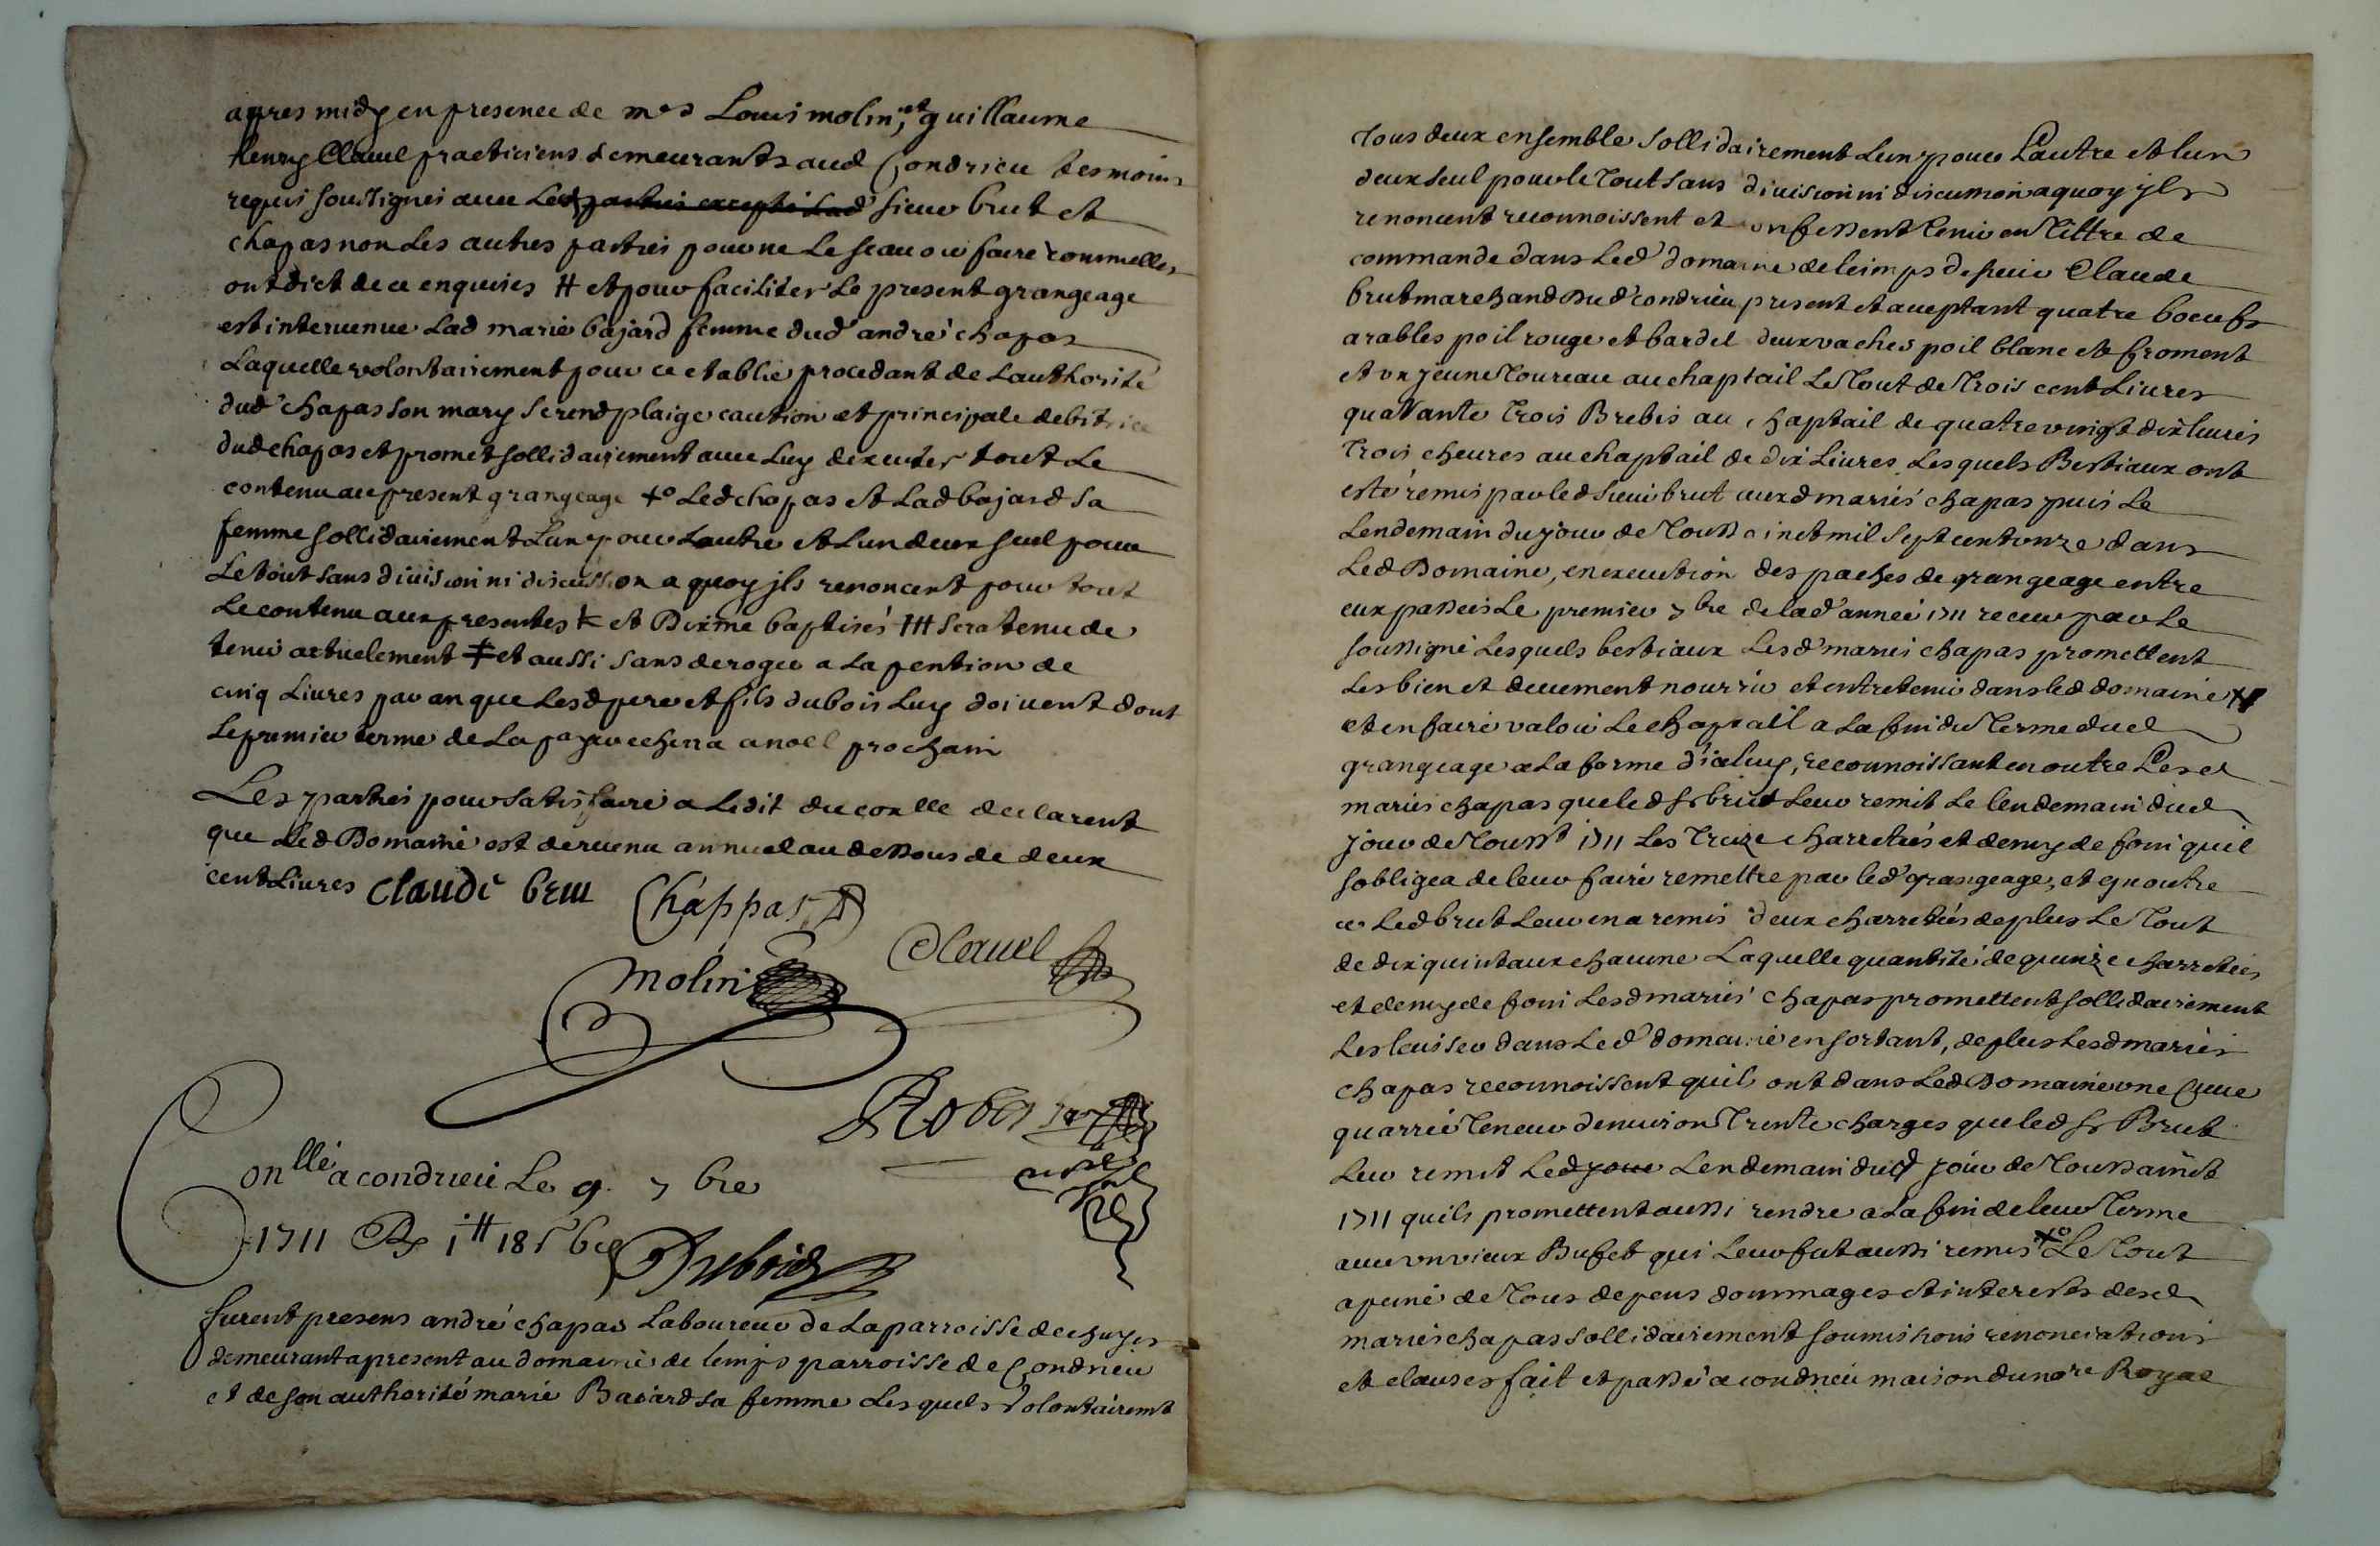 apres midy en presence de mes Louis molin, et guillaume
henry Clauel practiciens demeurants aud Condrieu tesmoins
requis soussignés auec Led parties excepté Lad sieur brut et
chapas non Les autres parties pour ne Le scauoir faire sommelles
ont dict de ce enquises # et pour faciliter Le present grangeage
est interuenue Lad marie bajard femme dud andré chapas
Laquelle volontairement pour ce establie procedant de Lauthorité
dud chapas son mary se rend plaige caution et principale debitrice
dud chapas et promet sollidairement auec Luy dexecuter tout Le
contenu au present grangeage +o Led chapas et Lad bajard sa
femme sollidairement Lun pour Lautre et Lun deux seul pour
Le tout sans diuision ni discussion a quoy jls renoncent pour tout
Le contenu aux presentes et Dixme baptisés ++ sera tenu de
tenir actuelement ǂ et aussi sans deroger a La pention de
cinq Liures par an que Lesd pere et fils dubois Luy doiuent dont
Le premier terme de La paye echerra a noel prochain
Les parties pour satisfaire a Ledit du conlle declarent
que Led Domaine est de reuenu annuel au dessous de deux
cent Liures Claude brut Chappas
Molin Clauel
Robert
Conllé a condrieu Le 9 7bre
1711 Rx 18s
Dubois
furent presens andré chapas Laboureur de La parroisse de chuyes
demeurant apresent au domaine de Leimps parroisse de Condrieu
et de son authorité marie Bajard sa femme Lesquels volontairemt
tous deux ensemble sollidairement Lun pour Lautre et lun
deux seul pour le tout sans diuision ni discution a quoy jls
renoncent reconnoissent et confessent tenir en tittre de
commande dans Led domaine de leimps de sieur Claude
brut marchand dud condrieu present et aceptant quatre boeufs
arables poil rouge et bardel deux vaches poil blanc et froment
et vn jeune toureau au chaptail Le tout de trois cent Liures
quarante trois Brebis au chaptail de quatre vingt dix liures
trois cheures au chaptail de dix Liures Lesquels Bestiaux ont
esté remis par led sieur brut auxd mariés chapas puis Le
Lendemain du jour de toussainct mil sept cent onze dans
Led Domaine, en execution des paches de grangeage entre
eux passeés Le premier 7bre de lad année 1711 receu par Le
soussigné Lesquels bestiaux Lesd mariés chapas promettent
Les bien et deuement nourrir et entretenir dans led domaine
et en faire valoir Le chaptail a La fin du terme dud
grangeage a La forme diceluy, reconnoissant en outre Lesd
mariés chapas que led sr brut Leur remit Le lendemain dud
jour de touss.t 1711 Les treize charretées et demy de foin quil
sobligea de leur faire remettre par led grangeage, et qu outre
ce Led brut Leur en a remis deux charretées de plus Le tout
de dix quintaux chacune Laquelle quantité de quinze charretées
et demy de foin Lesd mariés chapas promettent sollidairement
Les laisser dans Led domaine en sortant, de plus Lesd mariés
chapas reconnoissent quils ont dans Led Domaine vne Cuue
quarrée teneur denuiron trente charges que led sr Brut
Leur remit Led jour Lendemain dud jour de toussainct
1711 quils promettent aussi rendre a La fin de leur terme
auec vn vieux Bufet qui Leur fut aussi remis +o Le tout
a peine de tous depens dommages et interests desd
mariés chapas sollidairement soumissions renonciations
et clauses fait et passé a condrieu maison du nore Royal